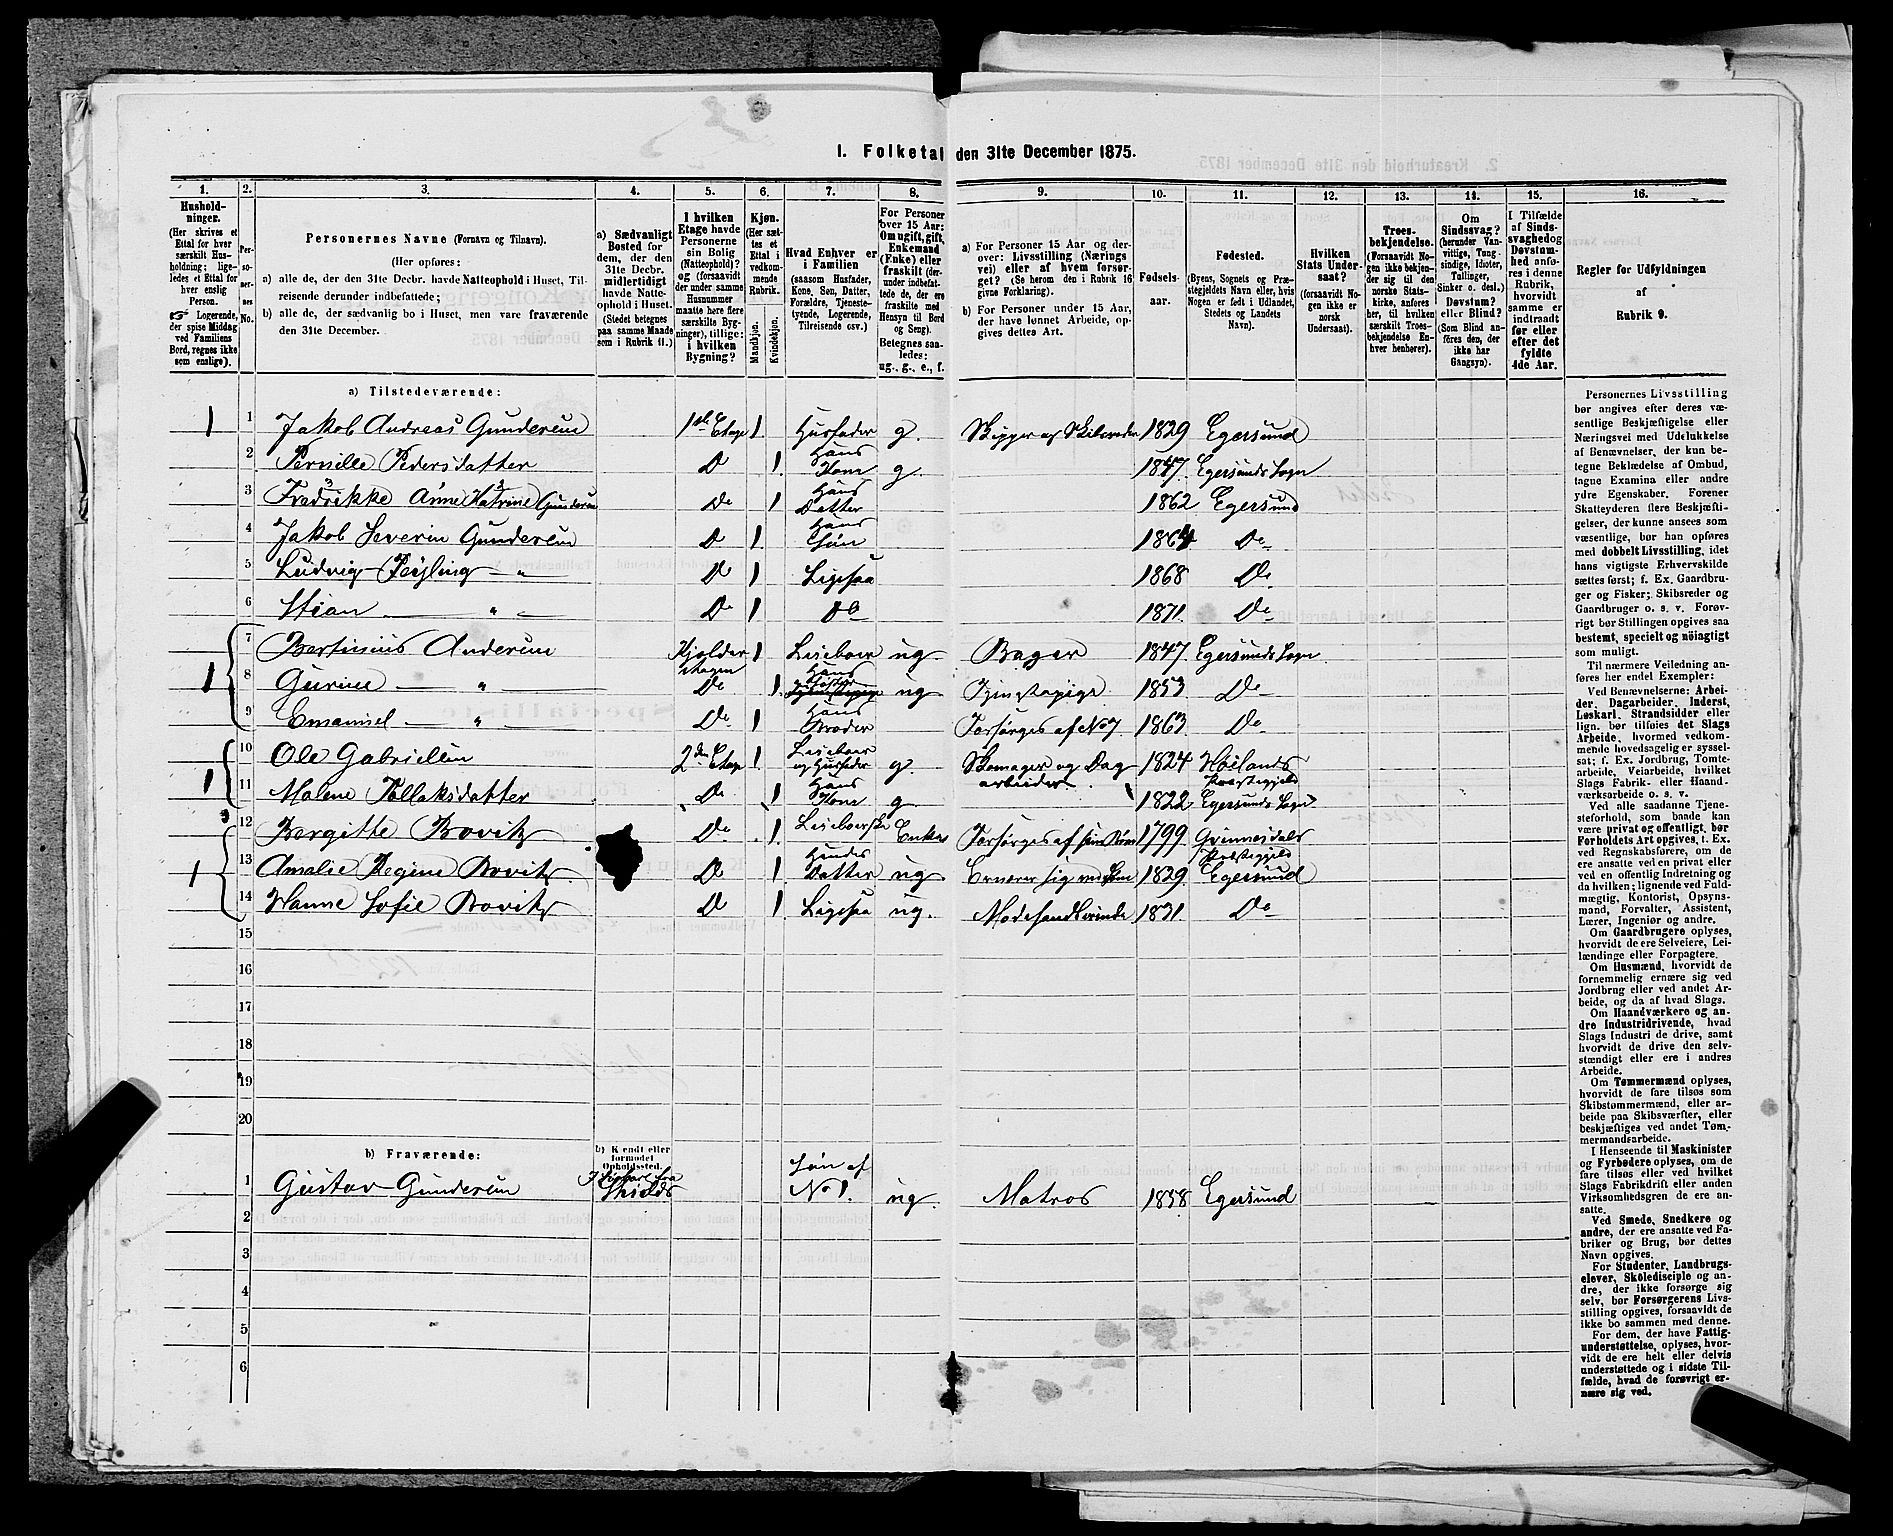 1. Folketal den 31te December 1875.
1. 2. 3. 4. 5. 6. 7. 8. 9. 10. 11. 12. 13. 14. 15. 16.
Husholdninger.
(Her skrives et
Ettal for hver
særskilt Husholdning; ligeledes et Ettal for
hver enslig
Person.
☞ Logerende,
der spise Middag
ved Familiens
Bord, regnes ikke
som enslige).
Personernes No.
Personernes Navne (Fornavn og Tilnavn).
(Her opføres:
a) alle de, der den 31te Decbr. havde Natteophold i Huset, Tilreisende derunder indbefattede;
b) alle de, der sædvanlig bo i Huset, men vare fraværende
den 31te December.
a) Sædvanligt
Bosted for
dem, der den
31te Decbr.
midlertidigt
havde Natteophold i Huset.
(Stedet betegnes
paa samme Maade
som i Rubrik 11.)
I hvilken
Etage havde
Personerne
sin Bolig
(Natteophold)?
og (forsaavidt
der under samme
Husnummer
maatte høre flere
særskilte Bygninger), tillige:
i hvilken
Bygning?
Kjøn.
(Her sættes et
Ettal i
vedkommende
Rubrik.
Mandkjøn.
Kvindekjøn.
Hvad Enhver er
i Familien
(saasom Husfader,
Kone, Søn, Datter,
Forældre, Tjenestetyende, Logerende,
Tilreisende osv.)
For Personer
over 15 Aar:
Om ugift, gift,
Enkemand
(Enke) eller
fraskilt (derunder indbefattede de, der ere
fraskilte med
Hensyn til Bord
og Seng).
Betegnes saaledes:
ug., g., e., f.
a) For Personer 15 Aar og derover: Livsstilling (Næringsvei) eller af hvem forsørget? (Se herom den i Rubrik 16
givne Forklaring).
b) For Personer under 15 Aar,
der have lønnet Arbeide, opgives dettes Art.
Fødselsaar.
Fødested.
(Byens, Sognets og Præstegjeldets Navn eller, hvis
Nogen er født i Udlandet,
Stedets og Landets
Navn).
Hvilken
Stats Undersaat?
(forsaavidt Nogen ikke er
norsk
Undersaat).
Troesbekjendelse.
(Forsaavidt Nogen ikke bekjender sig til den
norske Statskirke, anføres
her, til hvilken
særskilt Troesbekjendelse Enhver henhører).
Om
Sindssvag?
(herunder Vanvittige, Tungsindige, Idioter,
Tullinger,
Sinker o. desl.)
Døvstum?
eller Blind?
(Som Blind anføres den, der
ikke har
Gangsyn).
I Tilfælde
af Sindssvaghed og
Døvstumhed anføres i denne
Rubrik,
hvorvidt
samme er
indtraadt
før eller
efter det
fyldte
4de Aar.
Regler for Udfyldningen
af
Rubrik 9.
a) Tilstedeværende:
1 1 Jakob Andreas Gundersen 1ste Etage 1. Husfader g. Skipper og Skibsreder 1829 Egersund
2 Pernille Pedersdatter Do 1. Hans Kone g. 1847. Egersunds Sogn
3 Fredrikke Anne Katrine Gundersen Do 1 Hans Datter 1862 Egersund
4 Jakob Severin Gundersen Do 1. Hans Søn 1864 Do
5 Ludvig Feyling — " — Do 1 Ligesaa 1868 Do
6 Stian — " — Do 1 Do 1871. Do
1 7 Bertinius Andersen Kjelderetagen 1 Leieboer ug. Bager 1847 Egersunds Sogn
8 Gurine — " — Do 1. Hans Søster ug Tjenestepige 1853 Do
9 Emanuel — " — Do 1 Hans Broder Forsørges af No 7 1863 Do
1 10 Ole Gabrielsen 2den Etage 1. Leieboer og Husfader g. Skomager og Dagarbeider 1824 Høilands Præstegjeld
11 Malene Tollaksdatter Do 1 Hans Kone g 1822 Egersunds Sogn
1 12 Bergitte Bovitz Do 1. Leieboerske Enke Forsørges af 1799 Qvinnesdals Præstegjeld
13 Amalie Regine Bovitz Do 1 Hendes Datter ug Ernærer sig ved Søm 1829. Egersund
14 Hanne Sofie Bovitz Do 1 Ligesaa ug. Modehandlerinde 1831. Do
15
16
17
18
19
20
b) Fraværende:
b) Kendt eller
formodet
Opholdssted.
1 Gustav Gundersen Shields Søn af No 1. ug. Matros 1858 Egersund
2
3
4
5
6
Personernes Livsstilling
bør angives efter deres væsentlige Beskjæftigelse eller
Næringsvei med Udelukkelse
af Benævnelser, der kun betegne Beklædelse af Ombud,
tagne Examina eller andre
ydre Egenskaber. Forener
Skatteyderen flere Beskjæftigelser, der kunne ansees som
væsentlige, bør han opføres
med dobbelt Livsstilling, idet
hans vigtigste Erhvervskilde
sættes først; f. Ex. Gaardbruger og Fisker; Skibsreder og
Gaardbruger o. s. v. Forøvrigt bør Stillingen opgives saa
bestemt, specielt og nöiagtigt
som muligt.
Til nærmere Veiledning anføres her endel Exempler:
Ved Benævnelserne: Arbeider, Dagarbeider, Inderst,
Løskarl, Strandsidder eller
lign. bør tilføies det Slags
Arbeide, hvormed vedkommende hovedsagelig er sysselsat; f. Ex. Jordbrug, Tomtearbeide, Veiarbeide, hvilket
Slags Fabrik- eller Haandværksarbeide o. s. v.
Ved alle saadanne Tjenesteforhold, som baade kan
være privat og offentligt, bør
Forholdets Art opgives, t. Ex.
ved Regnskabsførere, om de
ere ansatte ved en privat eller
ved en offentlig Indretning og
da hvilken; lignende ved Fuldmægtig, Kontorist, Opsynsmand, Forvalter, Assistent,
Lærer, Ingeniør og andre.
Om Gaardbrugere oplyses,
hvorvidt de ere Selveiere, Leilændinge eller Forpagtere.
Om Husmænd, hvorvidt de
fornemmelig ernære sig ved
Jordbrug eller ved andet Arbeide, og da af hvad Slags.
Om Haandværkere og andre Industridrivende, hvad
Slags Industri de drive, samt
hvorvidt de drive den selvstændigt eller ere i andres
Arbeide.
Om Tømmermænd oplyses,
hvorvidt de fare tilsøs som
Skibstømmermænd, eller arbeide paa Skibsværfter, eller
beskjæftiges ved andet Tømmermandsarbeide.
I Henseende til Maskinister
og Fyrbødere oplyses, om de
fare tilsøs eller ved hvilket
Slags Fabrikdrift eller anden
Virksomhedsgren de ere ansatte.
Ved Smede, Snedkere og
andre, der ere ansatte ved Fabriker og Brug, bør dettes
Navn opgives.
For Studenter, Landbrugselever, Skoledisciple og andre, der ikke forsørge sig
selv, bør Forsørgerens Livsstilling opgives, forsaavidt de
ikke bo sammen med denne.
For dem, der have Fattigunderstøttelse, oplyses, hvorvidt de ere helt eller delvis
understøttede og i sidste Tilfælde, hvad de forøvrigt ernære sig ved.